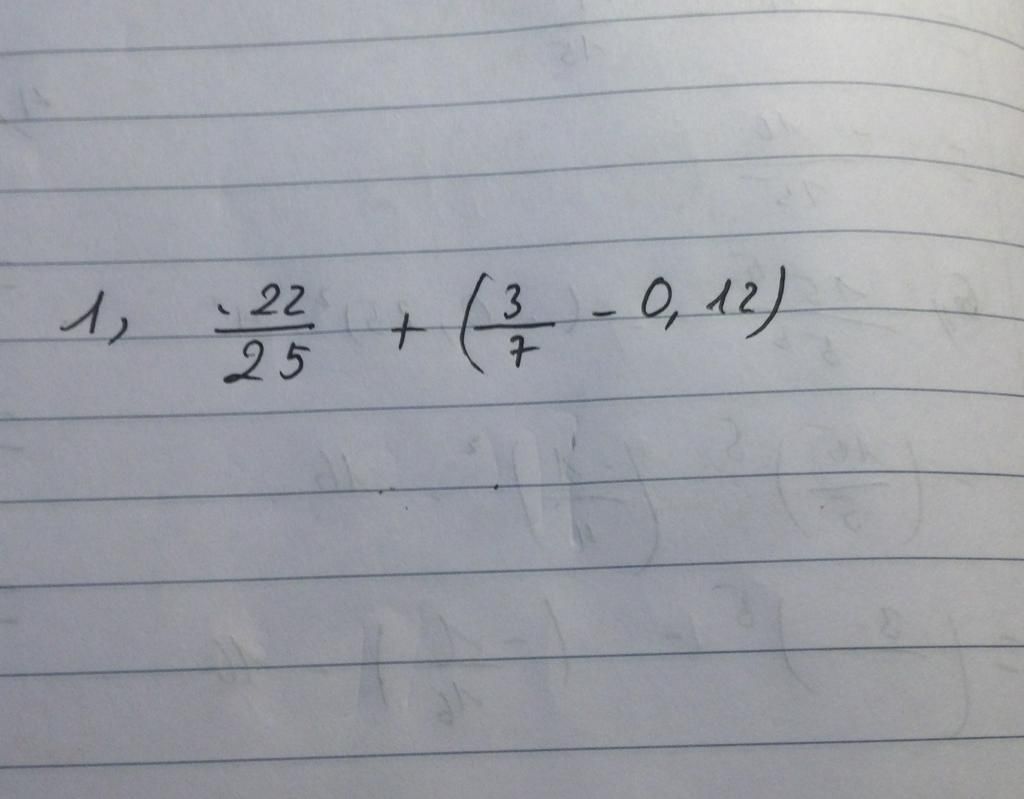 1, -22/25 + (3/7 - 0,12)